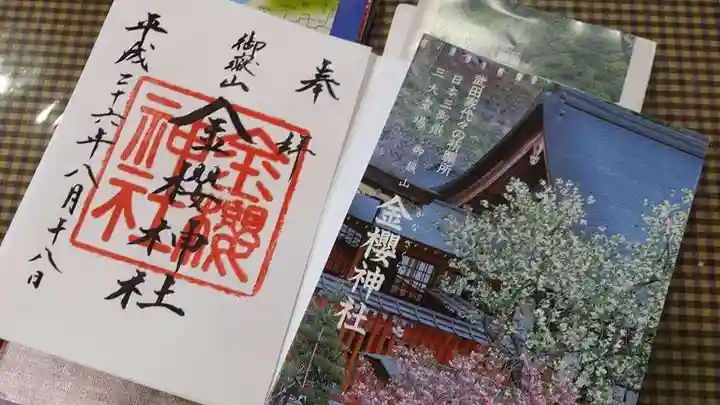 奉拝
御嶽山
金櫻神社
平成二十六年八月十八日
金櫻神社
武田家代々の祈願所
日本三御嶽
三大霊場 御嶽山
かなざくら
金櫻神社